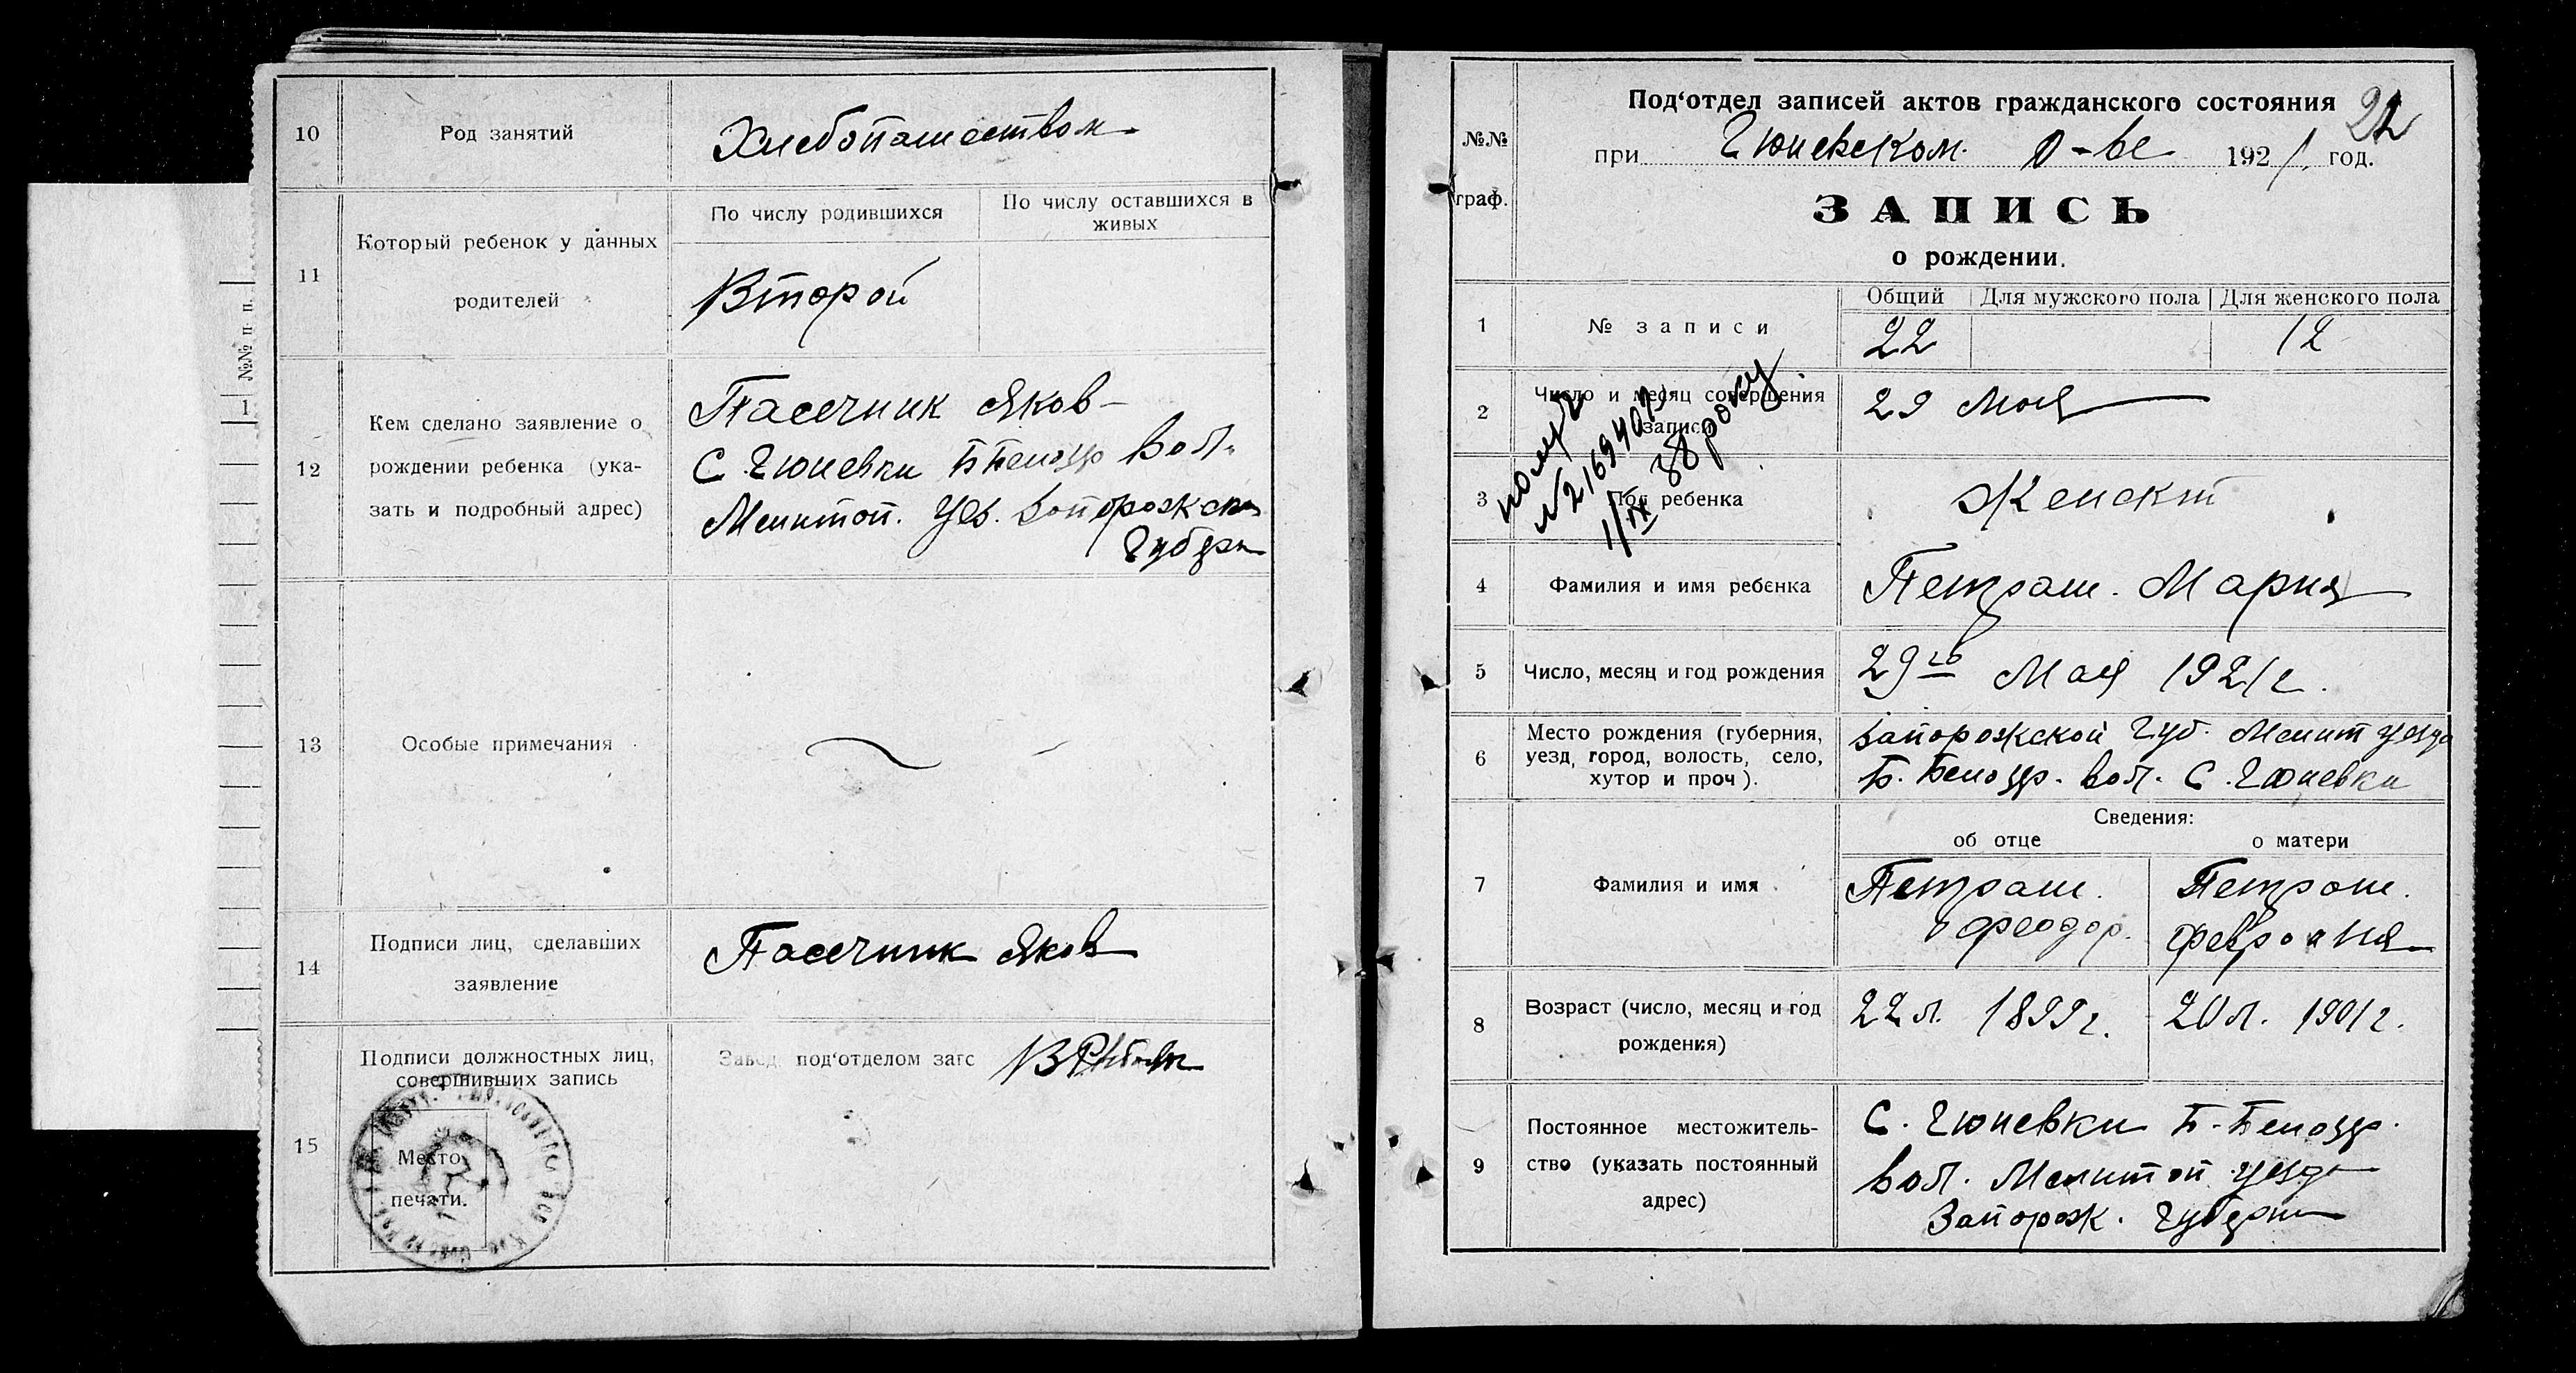 10
Род занятий
Хлебопашеством
11
Который ребенок у данных
родителей
По числу родившихся
По числу оставшихся в
живых
Второй
№№ п п.
1
12
Кем сделано заявление о
рождении ребенка (ука-
зать и подробный адрес)
Пасечник Яков
С. Гюневки Б Белозер Вол.
Мелитоп. Уез. Запорожской
Губерн
13
Особые примечания
14
Подписи лиц, сделавших
заявление
Пасечник Яков
15
Подписи должностных лиц,
совершивших запись
Место
печати.
Завед. под'отделом загс
№№
граф.
Под'отдел записей актов гражданского состояния
22
при Гюневском. О-ве 1921. год.
ЗАПИСЬ
о рождении.
1
№ записи
Общий
Для мужского пола
Для женского пола
22
12
2
Число и месяц совершения
записи
29 Мая
№ 2169407
1/IX 38 року
3
Пол ребенка
Женский
4
Фамилия и имя ребенка
Петраш. Мария
5
Число, месяц и год рождения
29го Мая 1921 г.
6
Место рождения (губерния,
уезд, город, волость, село,
хутор и проч).
Запорожской Губ. Мелит уезда
Б. Белозер. Вол. С. Гюневки
Сведения:
об отце
о матери
7
Фамилия и имя
Петраш.
Феодор.
Петраш.
Феврония
8
Возраст (число, месяц и год
рождения)
22 л. 1899 г.
20 л. 1901 г.
9
Постоянное местожитель-
ство (указать постоянный
адрес)
С. Гюневки Б. Белозер.
Вол. Мелитоп уезда
Запорож. Губерни